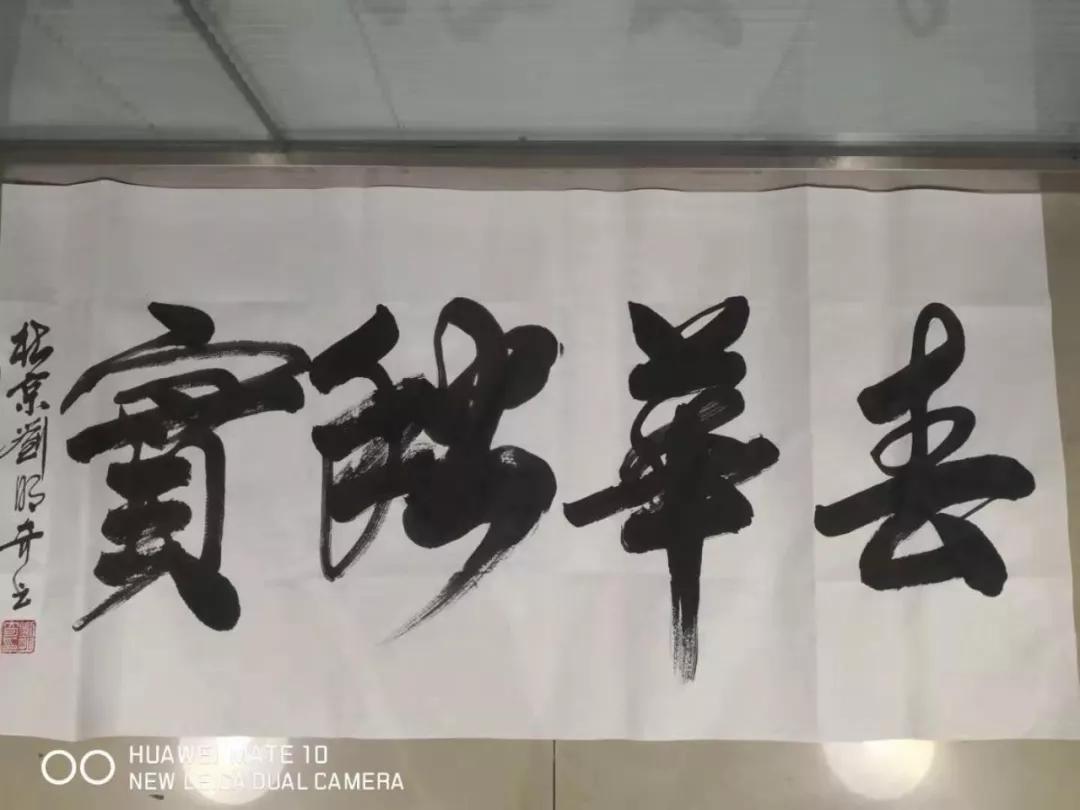 春華秋實
於京劉明奇书
HUAWEI MATE 10
NEW LEICA DUAL CAMERA